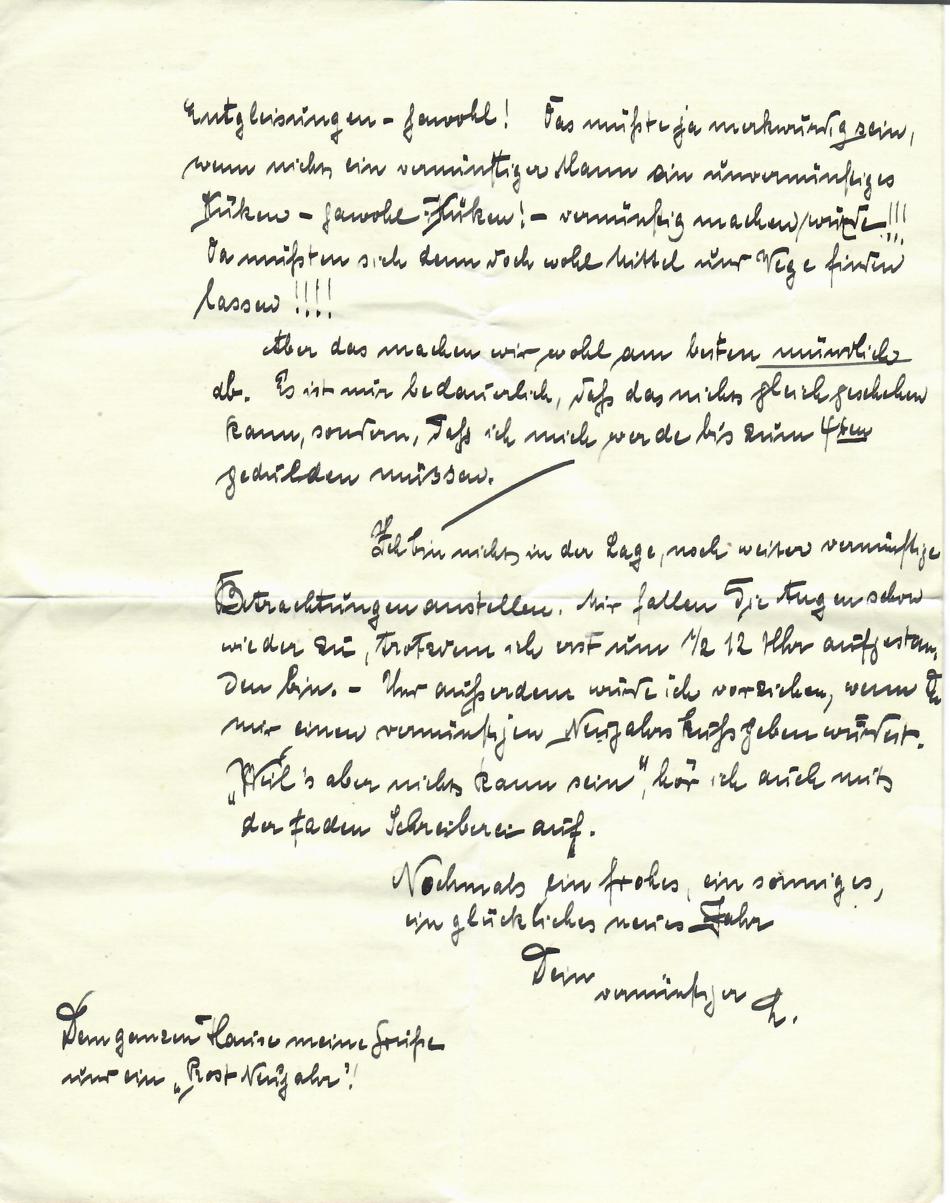 Entgleisungen – Jawohl! Das müßte ja merkwürdig sein,
wenn nicht ein vernünftiger Mann ein unvernünftiges
Küken – jawohl Küken! – vernünftig machen würde!!!
Da müßten sich denn doch wohl Mittel und Wege finden
lassen!!!!
Aber das machen wir wohl am besten mündlich
ab. Es ist mir bedauerlich, daß das nicht gleich geschehen
kann, sondern, daß ich mich werde bis zum 4ten
gedulden müssen.
Ich bin nicht in der Lage, noch weiter vernünftige
Betrachtungen anstellen. Mir fallen die Augen schon
wieder zu, trotzdem ich erst um 1/2 12 Uhr aufgestan-
den bin. – Und außerdem würde ich vorziehen, wenn Du
mir einen vernünftjen Neujahrskuß geben würdest.
„Weil's aber nicht kann sein", hör ich auch mit
der faden Schreiberei auf.
Nochmals ein frohes, ein sonniges,
ein glückliches neues Jahr
Dein
vernünftiger
Dem ganzen Hause meine Grüße
und ein „Prost Neujahr"!